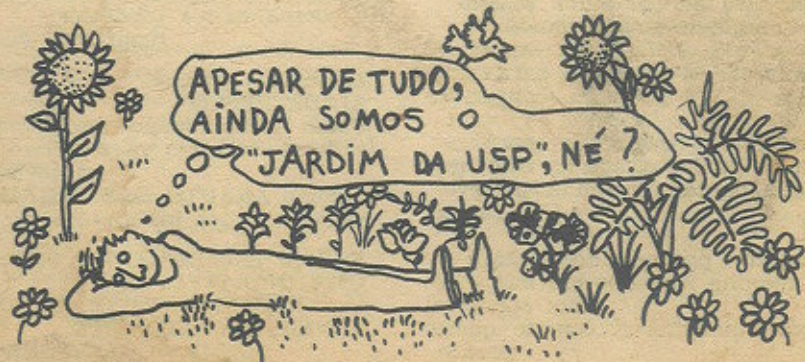 APESAR DE TUDO,
AINDA SOMOS O
"JARDIM DA USP", NÉ?